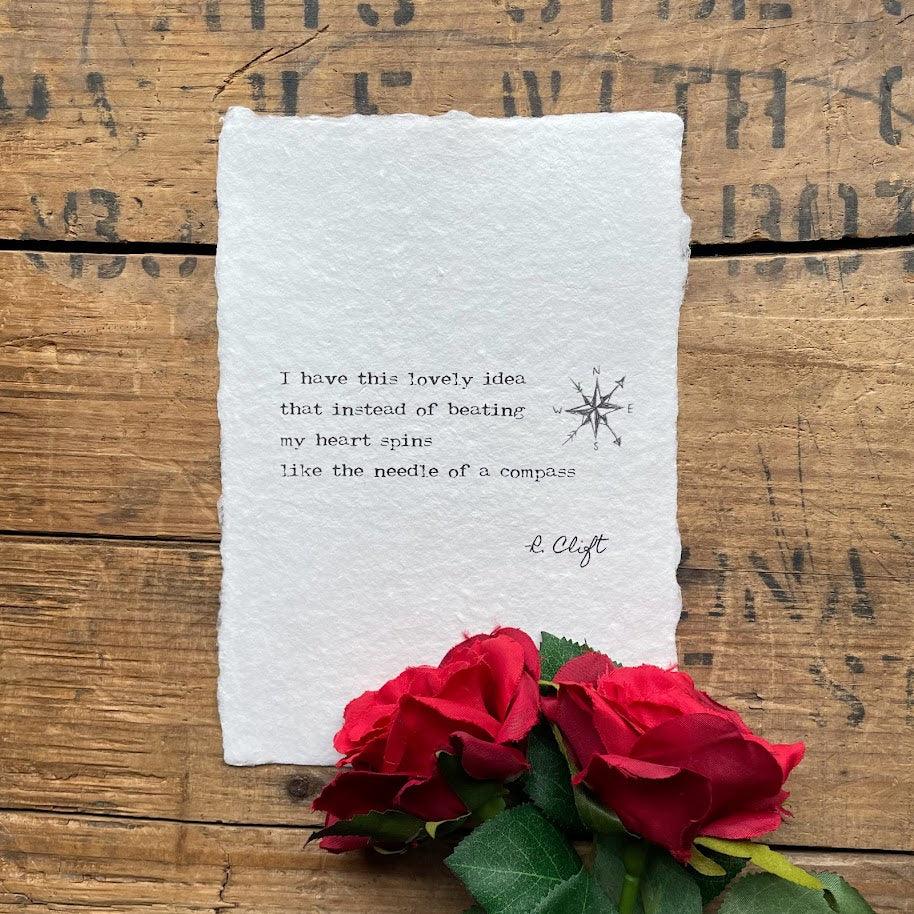 WITH
I have this lovely idea
that instead of beating
my heart spins
like the needle of a compass
N
W E
S
R. Clift